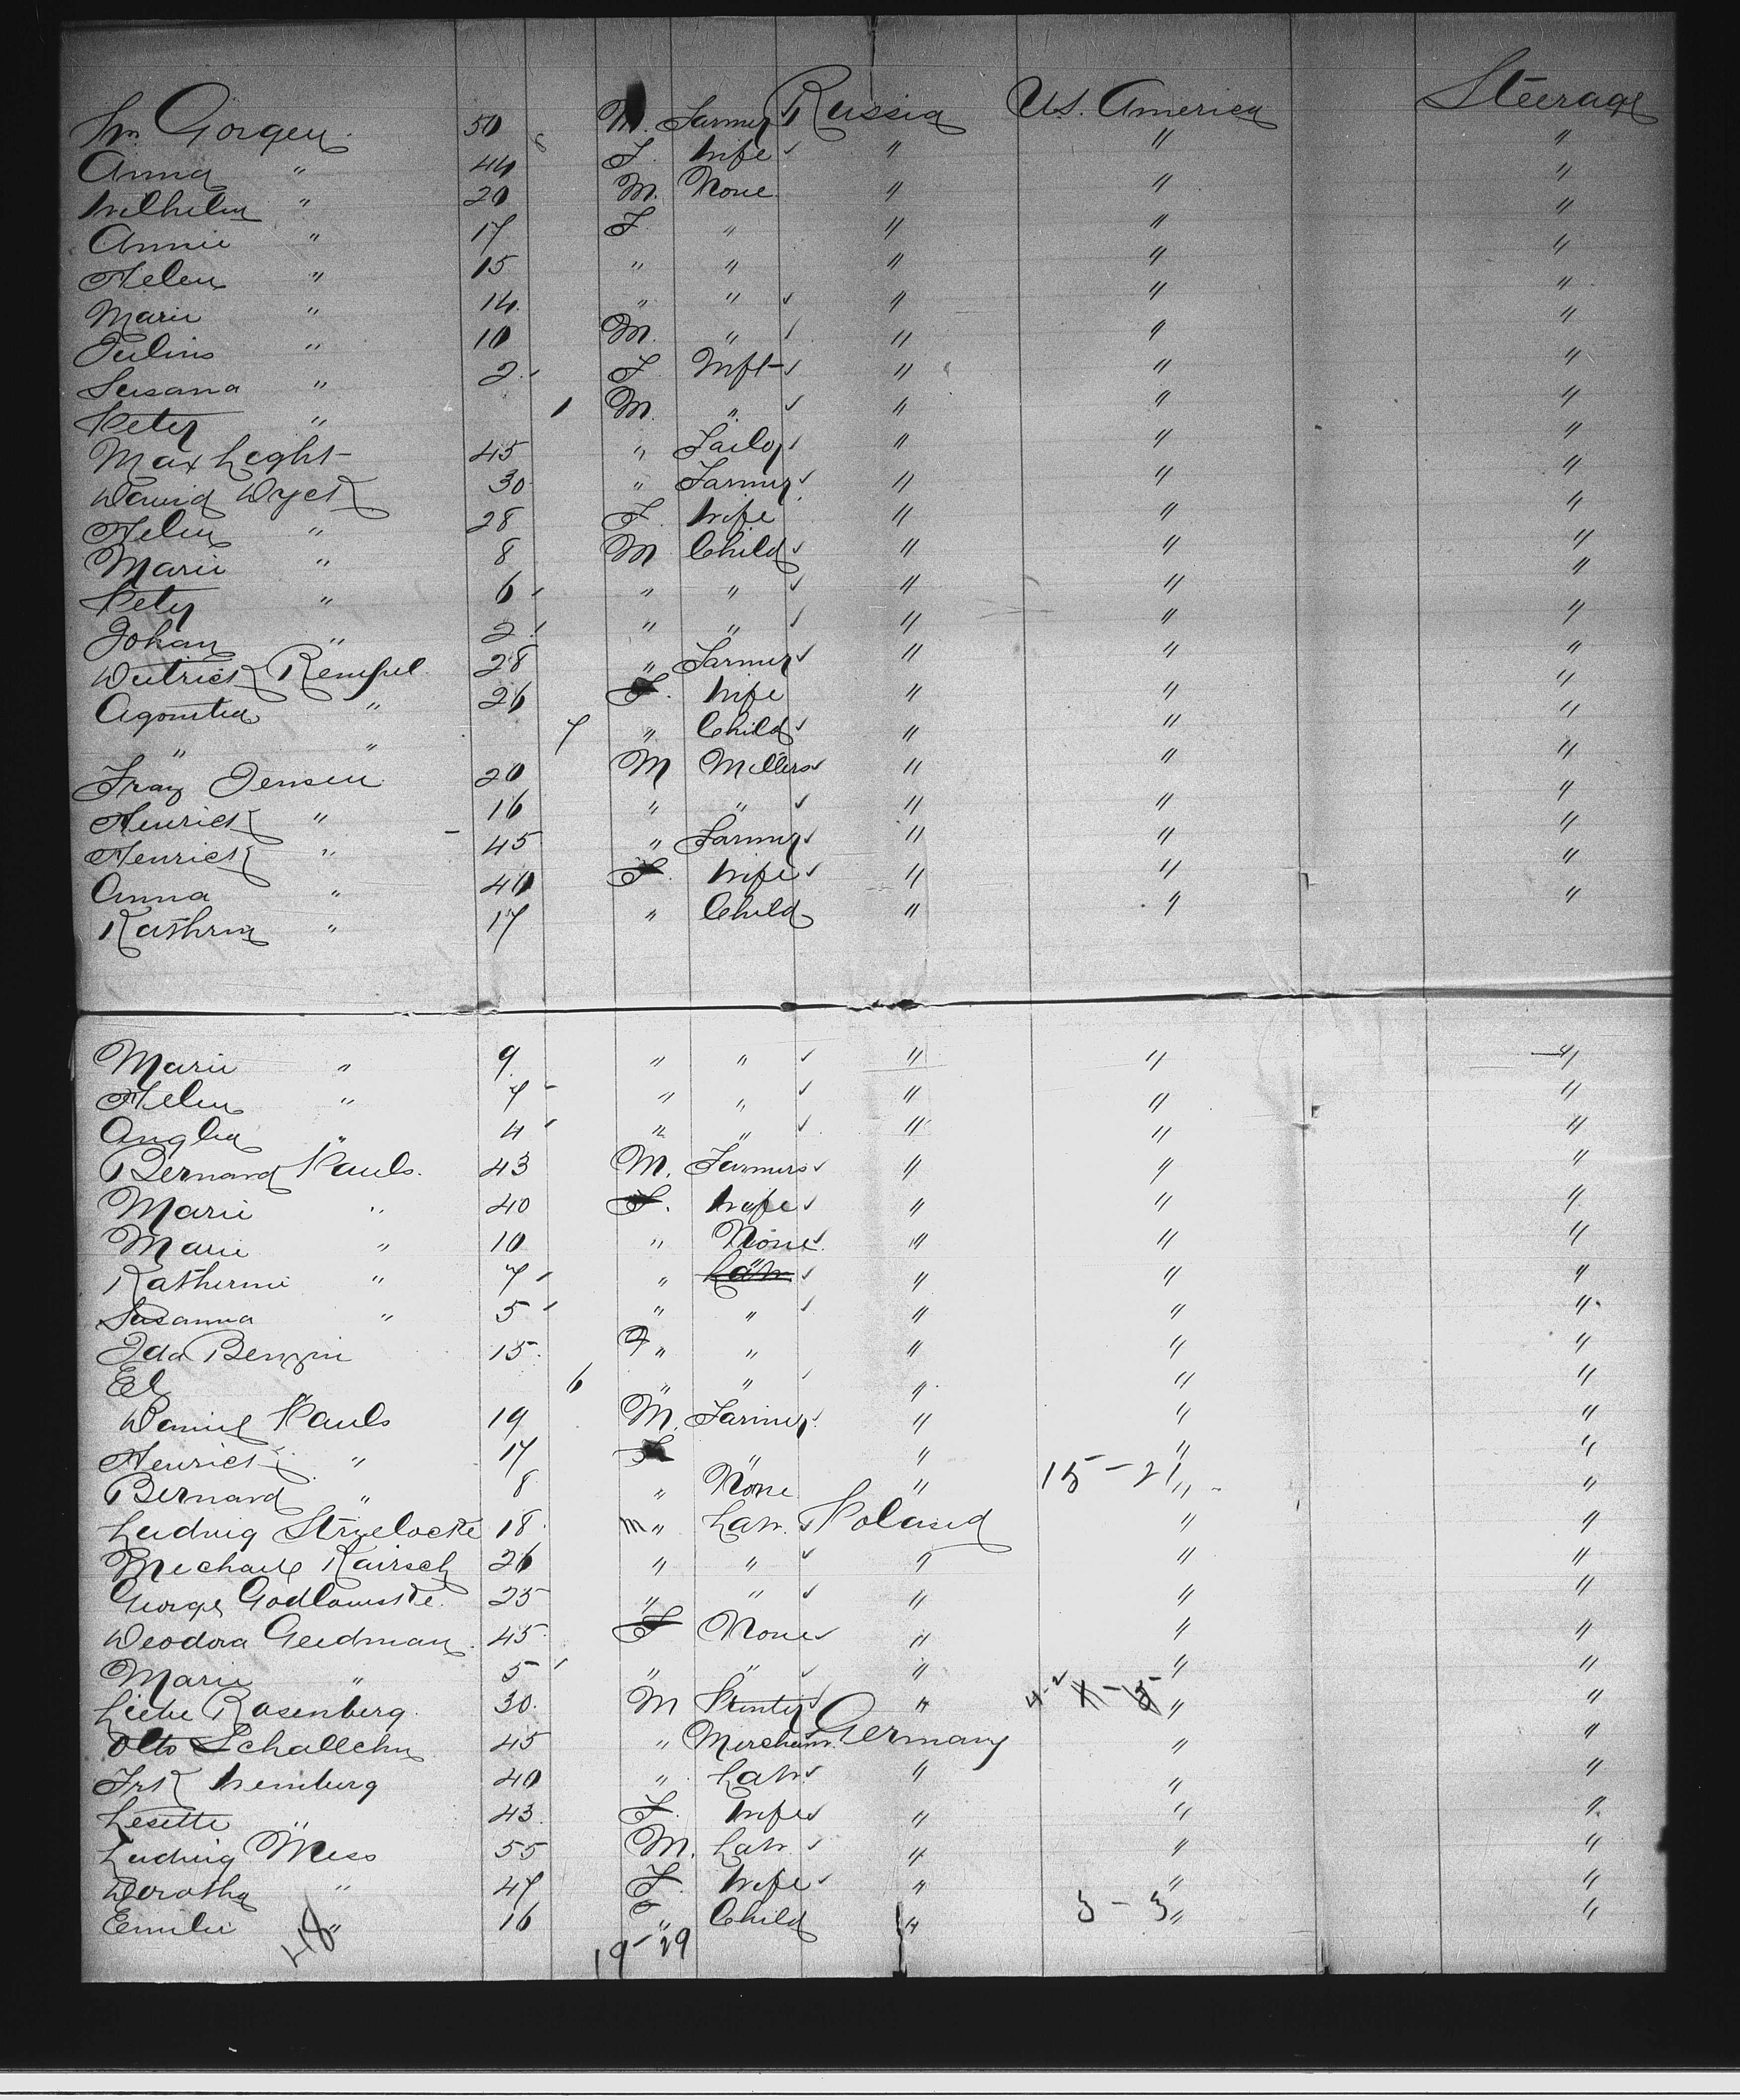 Wm. Gorgen 50 M. Farmer Russia U.S. America Steerage
Anna " 44 F. Wife " " "
Wilhelm " 20 M. None " " "
Annie " 17 F. " " " "
Helen " 15 " " " " "
Marie " 14 " " " " "
Julius " 10 M. " " " "
Susana " 2 F. Inft " " "
Peter " 1 M. " " " "
Max Leght 45 " Tailor " " "
David Dyck 30 " Farmer " " "
Helen " 28 F. Wife " " "
Marie " 8 M Child " " "
Peter " 6 " " " " "
Johan " 2 " " " " "
Dietrich Rempel 28 " Farmer " " "
" 26 F. Wife " " "
" " 7 " Child " " "
Franz Jensen 20 M Millers " " "
Henrich " 16 " " " " "
Henrich " 45 " Farmer " " "
Anna " 40 F. Wife " " "
Kathrin " 17 " Child " " "
Marie " 9 " " " " "
Helen " 7 " " " " "
" 4 " " " " "
Bernard Pauls. 43 M. Farmers " " "
Marie " 40 F. Wife " " "
Marie " 10 " None " " "
Katherine " 7 " Labr. " " "
Susanna " 5 " " " " "
Ida Benzin 15 F " " " " "
El 6 " " " " "
Daniel Pauls 19 M. Farmer " " "
Henrich " 17 F " " " "
Bernard " 8 " None " 15-21 " "
Ludwig 18 M " Labr. Poland " "
Michael Kairsch 26 " " " " "
George Godlowske. 25 " " " " "
Deodora Geedman 45 F None " " "
Marie " 5 " " " " "
Liebe Rosenberg 30. M Printer " 4-2 X-3 " "
Otto Schallehn 45 " Merchant Germany " "
Frk Weinberg 40 " Labr " " "
Lesette " 43 F. Wife " " "
Ludwig Mess 55 M. Labr " " "
Dorotha " 47 F. Wife " " "
Emilie " 16 F " Child " 3-3 " "
48 19-29